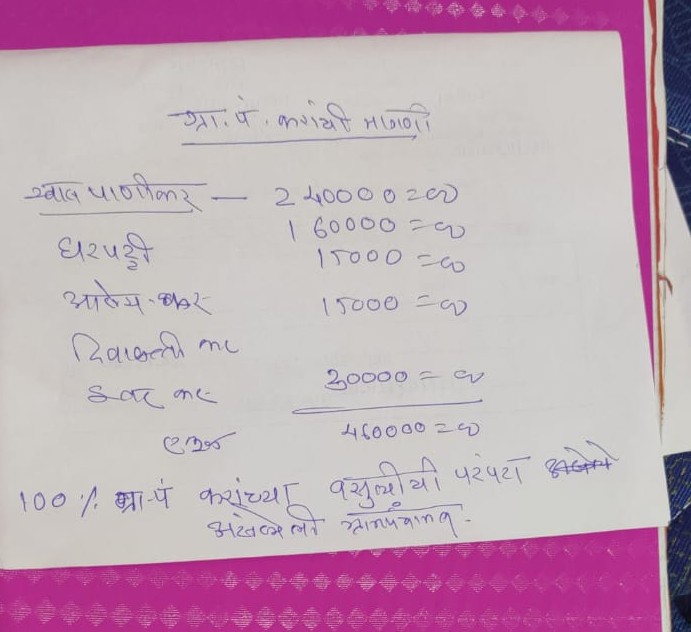 ग्रा. पं. करांची मागणी
खाव पाणीकर — 240000=00
160000=00
घरपट्टी 15000=00
आरोग्य कर 15000=00
दिवाबत्ती कर
इतर कर 30000=00
एकूण 460000=00
100 % ग्रा.पं करांच्या वसुलीची परंपरा
असलेली ग्रामपंचायत.